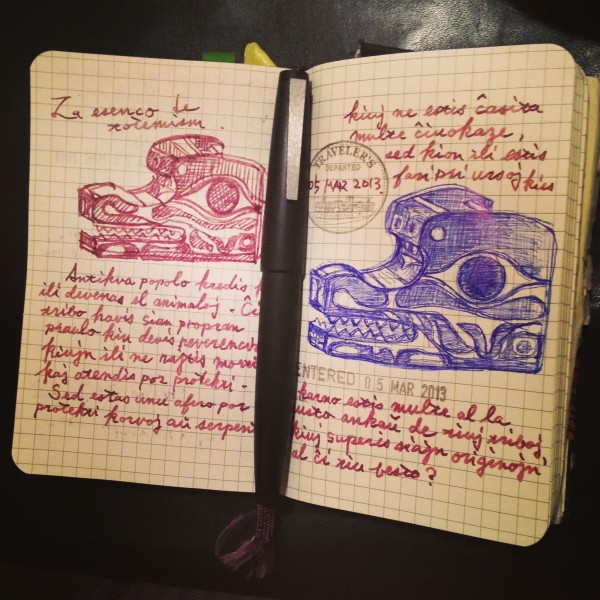 La esenco de
totemism.
Antikva popolo kredis
ili devenas el animaloj.
tribo havis sian propran
kiu devis
kiujn ili ne rajtis
kaj atendis por protekti.
Sed estas unu afero por
protekti korvoj aŭ serpent
kiuj ne estis ĉasita
multe ĉiuokaze,
sed kion ili estis
fari pri ursoj kies
TRAVELER'S
DEPARTED
05 MAR 2013
ENTERED 05 MAR 2013
karno estis multe al la
gusto ankau de tiuj triboj,
kiuj superis siajn originojn
al ĉi tiu besto?